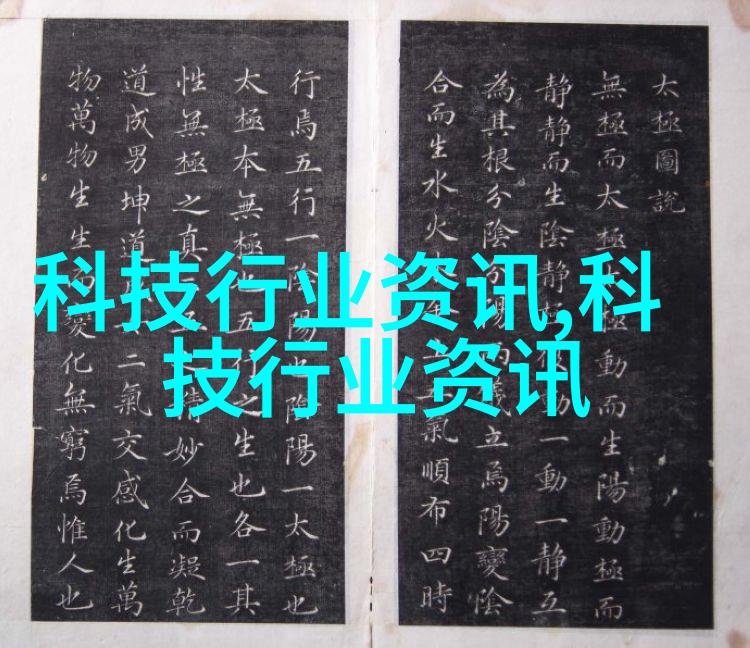 太極圖說
無極而太極極動而生陽動極而
静静而生陰静極動一動一静互
為其根分陰分陽兩儀立焉陽變陰
合而生水火氣順布四時
行焉五行一陰陽也陰陽一太極也
太極本無極也五行之生也各一其
性無極之真五之精妙合而凝乾
道成男坤道二氣交感化生萬
物萬物生生而變化無窮焉惟人也
科技行业资讯,科
技行业资讯